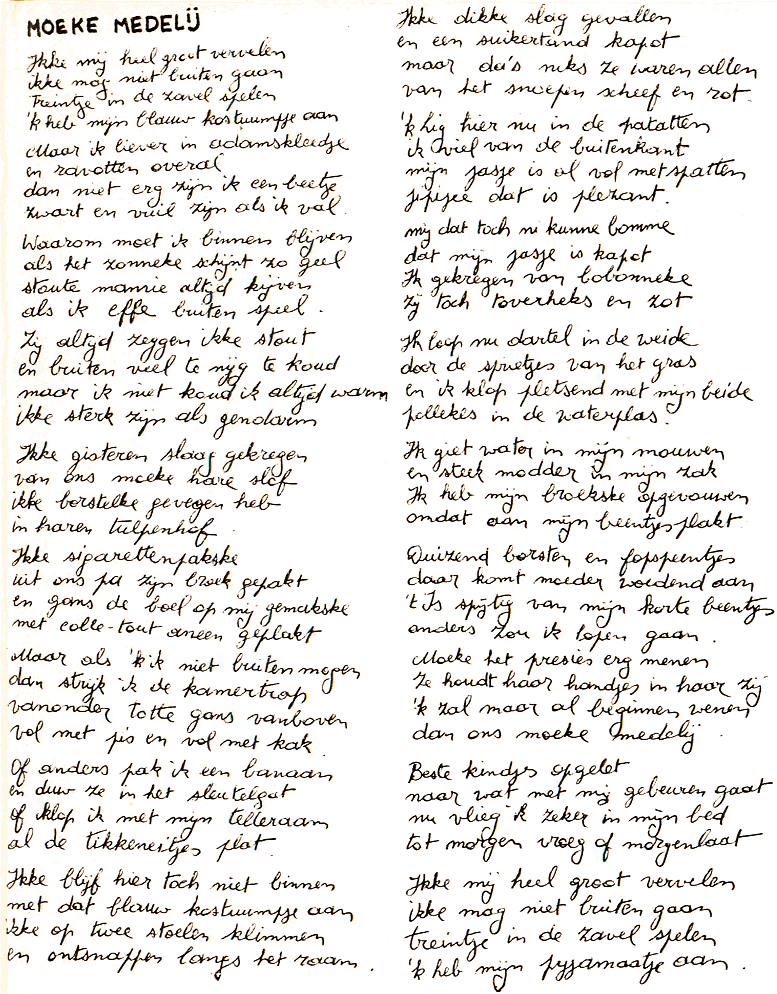 MOEKE MEDELIJ
Ikke mij heel groot vervelen
ikke mag niet buiten gaan
Treintje in de zavel spelen
'k heb mijn blauw kostuumpje aan
Maar ik liever in adamskleedje
en ravotten overal
dan niet erg zijn ik een beetje
zwart en vuil zijn als ik val.
Waarom moet ik binnen blijven
als het zonneke schijnt zo geel
stoute mannie altijd kijven
als ik effe buiten speel.
Zij altijd zeggen ikke stout
en buiten veel te nijg te koud
maar ik niet koud ik altijd warm
ikke sterk zijn als gendarm
Ikke gisteren slaag gekregen
van ons moeke hare slof
ikke borstelke gevegen heb
in haren tulpenhof
Ikke sigarettenpakske
uit ons pa zijn broek gepakt
en gans de boel op mij gemakske
met colle-tout aneen geplakt
Maar als 'k ik niet buiten mogen
dan strijk ik de kamertrap
vanonder totte gans vanboven
vol met pis en vol met kak
Of anders pak ik een banaan
en duw ze in het sleutelgat
of klop ik met mijn telleraam
al de tikkeneitjes plat.
Ikke blijf hier toch niet binnen
met dat blauw kostuumpje aan
ikke op twee stoelen klimmen
en ontsnappen langs het raam.
Ikke dikke slag gevallen
en een suikertand kapot
maar da's niks ze waren allen
van het snoepen scheef en rot.
'k lig hier nu in de patatten
ik viel van de buitenkant
mijn jasje is al vol met spatten
jipijee dat is plezant.
mij dat toch ni kunne bomme
dat mijn jasje is kapot
Ik gekregen van bobonneke
zij toch toverheks en zot
Ik loop nu dartel in de weide
door de sprietjes van het gras
en ik klop pletsend met mijn beide
pollekes in de waterplas.
Ik giet water in mijn mouwen
en steek modder in mijn zak
Ik heb mijn broekske opgevouwen
omdat aan mijn beentjes plakt
Duizend borsten en fopspeentjes
daar komt moeder woedend aan
't Is spijtig van mijn korte beentjes
anders zou ik lopen gaan.
Moeke het presies erg menen
ze houdt haar handjes in haar zij
'k zal maar al beginnen wenen
dan ons moeke medelij.
Beste kindjes opgelet
naar wat met mij gebeuren gaat
nu vlieg 'k zeker in mijn bed
tot morgen vroeg of morgenlaat
Ikke mij heel groot vervelen
ikke mag niet buiten gaan
treintje in de zavel spelen
'k heb mijn pyjamaatje aan.